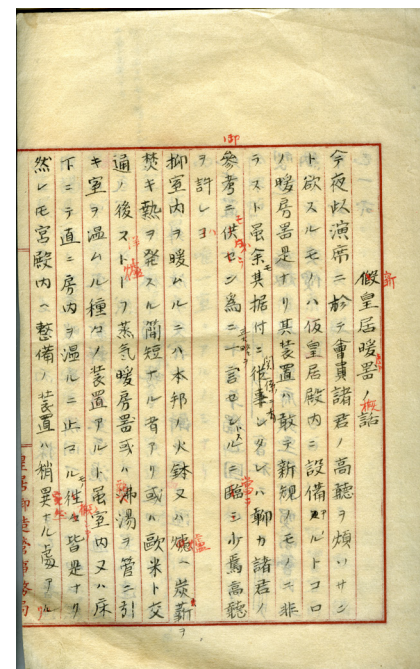 新皇居暖房器ノ概話
今夜此演席ニ於テ會員諸君ノ高聽ヲ煩ハサン
ト欲スルモノハ仮皇居殿内ニ設備アルトコロ
ノ暖房器是ナリ其装置ハ敢テ新規ノモノニ非
ラスト虽余其据付ニ従事シタレハ聊カ諸君ノ
御參考ニ供セン為ニ一言セントスルニ臨ミ少焉高聽
ヲ許シヨ
抑室内ヲ暖ムルニハ本邦ノ火鉢又ハ爐ヘ炭薪ヲ
焚キ熱ヲ発スル簡短ナル者アリ或ハ歐米ト交
通ノ後ストーフ蒸氣暖房器或ハ沸湯ヲ管ニ引
キ室ヲ温ムル種々ノ装置アルト虽室内又ハ床
下ニテ直ニ房内ヲ温ルニ止マル性皆是ナリ
然レモ宮殿内ヘ整備ノ装置ハ稍異ナル處アル
皇居御造營事務局